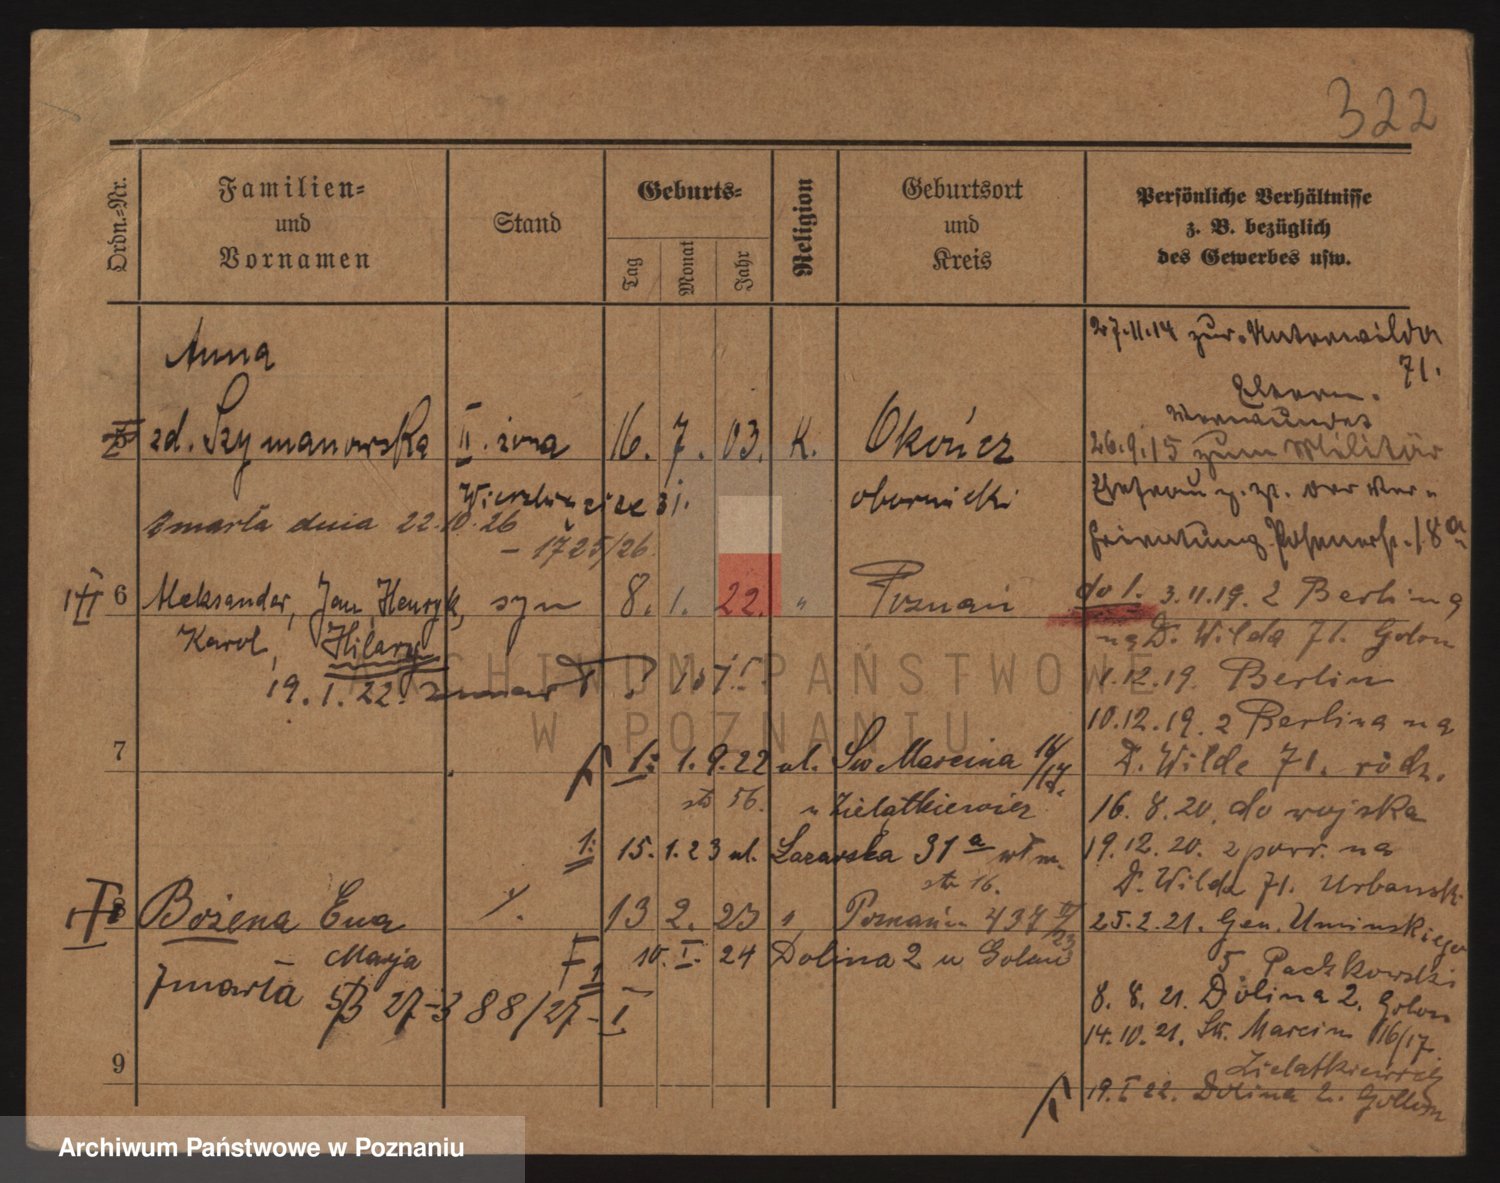 322
Ordn.-Nr.
Familien-
und
Vornamen
Stand
Geburts-
Tag
Monat
Jahr
Religion
Geburtsort
und
Kreis
Persönliche Verhältnisse
z. B. bezüglich
des Gewerbes usw.
Anna
zd. Szymanowska II. żona 16. 7. 03. K.
obornicki
zmarła dnia 22.10.26
– 1725/26
6 Aleksander, Jan, Henryk, syn 8. 1. 22. " Poznań
Karol, Hilary
19. 1. 22.
7
1: 1. 9. 22 ul. Św Marcina 16/17
str 56. u Zielątkiewicz
1: 15. 1. 23 ul. Łazarska 31a
str 16.
8 Bożena Ewa 13 2. 23 "
Marja
10. I. 24 Dolina 2 u Golon
zmarła
9
27.11.14 zur. Unterwilda
71.
Eltern.
26.9.15 zum Militär
do 1. 3.11.19. z Berlina
na D. Wilda 71. Golon
1.12.19. Berlin
10.12.19. z Berlina na
D. Wilde 71. rodz.
16. 8. 20. do wojska
19.12. 20. z powr. na
D. Wilda 71. Urbański
25. 2. 21. Gen. Umińskiego
5. Paczkowski
8. 8. 21. Dolina 2. Golon
14. 10. 21. Św. Marcin 16/17
Zielątkiewicz
19. I 22. Dolina 2.
ARCHIWUM PAŃSTWOWE
W POZNANIU
Archiwum Państwowe w Poznaniu